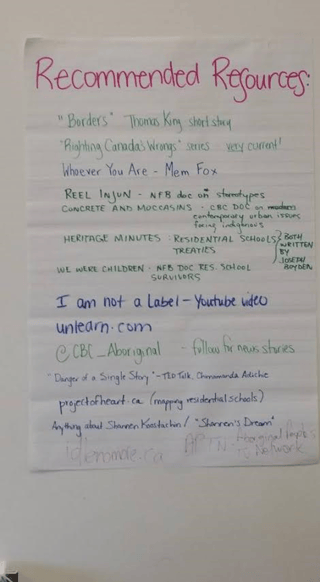 Recommended Resources:
"Borders" Thomas King short story
"Righting Canada's Wrongs" series - very current!
Whoever You Are - Mem Fox
REEL INJUN - NFB doc on stereotypes
CONCRETE AND MOCCASINS - CBC DOC on modern
contemporary urban issues
facing indigenous
HERITAGE MINUTES - RESIDENTIAL SCHOOLS } BOTH
TREATIES WRITTEN
BY
JOSEPH
BOYDEN
WE WERE CHILDREN - NFB DOC RES. SCHOOL
SURVIVORS
I am not a Label - Youtube video
unlearn.com
@CBC_Aboriginal - follow for news stories
"Danger of a Single Story" - TED Talk, Chimamanda Adichie
projectofheart.ca (mapping residential schools)
Anything about Shannen Koostachin / "Shannen's Dream"
idlenomore.ca APTN - Aboriginal Peoples
Network